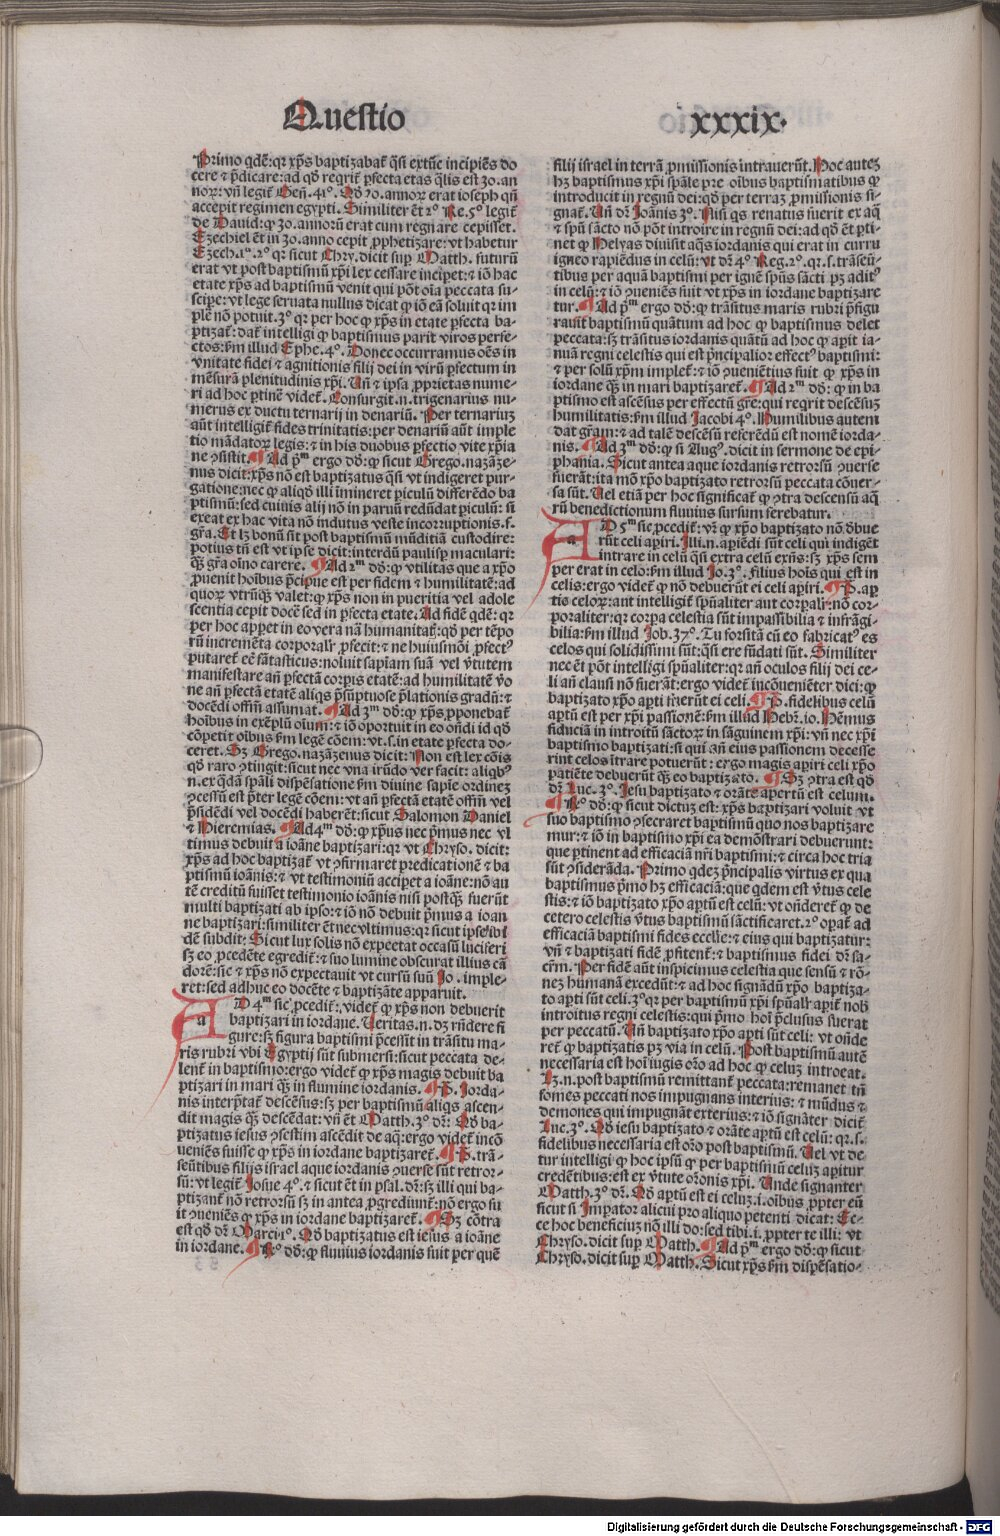 Questio xxxix.
Primo qdē: qr xp̄s baptizabat̄ q̄si extūc incipiēs do
cere ⁊ p̄dicare: ad qd̄ reqrit̄ ꝑfecta etas q̄lis est 30. an
noꝝ: vn̄ legit̄ Gen̄. 41°. Qd̄ 30. annoꝝ erat ioseph qn̄
accepit regimen egypti. Similiter ēt 2° Re. 5° legit̄
de Dauid: ꝙ 30. annoꝝ erat cum regnare cepisset.
Ezechiel ēt in 30. anno cepit ꝓphetizare: vt habetur
Ezech. 1°. 2° qr sicut Chry. dicit suꝑ Matth. futurū
erat vt post baptismū xp̄i lex cessare incipet: ⁊ iō hac
etate xp̄s ad baptismū venit qui pōt oīa peccata su-
scipe: vt lege seruata nullus dicat ꝙ iō eā soluit qr im
plē nō potuit. 3° qr per hoc ꝙ xp̄s in etate ꝑfecta ba-
ptizat̄: dat̄ intelligi ꝙ baptismus parit viros perfe-
ctos: fm illud Ephe. 4°. Donec occurramus oēs in
vnitate fidei ⁊ agnitionis filij dei in virū ꝑfectum in
mēsurā plenitudinis xp̄i. Un̄ ⁊ ipsa ꝓprietas nume-
ri ad hoc ꝑtinē videt̄. Consurgit. n. trigenarius nu-
merus ex ductu ternarij in denariū. Per ternariuꝫ
aūt intelligit̄ fides trinitatis: per denariū aūt imple
tio mādatoꝝ legis: ⁊ in his duobus ꝑfectio vite xp̄ia
ne ꝯsistit. Ad p̄m ergo dd̄: ꝙ sicut Grego. nazāze-
nus dicit: xp̄s nō est baptizatus q̄si vt indigeret pur-
gatione: nec ꝙ aliqd̄ illi īmineret ꝑiculū differēdo ba
ptismū: sed cuiuis alij nō in paruū redūdat ꝑiculū: si
exeat ex hac vita nō indutus veste incorruptionis. s.
gr̄a. Et lꝫ bonū sit post baptismū mūditiā custodire:
potius tn̄ est vt ipse dicit: interdū paulisꝑ maculari:
q̄ꝫ gr̄a oīno carere. Ad 2m dd̄: ꝙ vtilitas que a xp̄o
ꝓuenit hoībus p̄cipue est per fidem ⁊ humilitatē: ad
quoꝝ vtrūqꝫ valet: ꝙ xp̄s non in pueritia vel adole
scentia cepit docē sed in ꝑfecta etate. Ad fidē qdē: qr
per hoc apꝑet in eo vera nā humanitat̄: qd̄ per tēpo
rū incremēta corporalr̄ ꝓfecit: ⁊ ne huiusmōi ꝓfect9
putaret̄ eē fātasticus: noluit sapīam suā vel v̄tutem
manifestare an̄ ꝑfectā corꝑis etatē: ad humilitatē v̄o
ne an̄ ꝑfectā etatē aliqs p̄sūptuose p̄lationis gradū: ⁊
docēdi offm̄ assumat. Ad 3m dd̄: ꝙ xp̄s ꝓponebat̄
hoībus in exēplū oīum: ⁊ iō oportuit in eo on̄di id qd̄
cōpetit oībus fm legē cōem: vt. s. in etate ꝑfecta do-
ceret. Sꝫ Grego. nazāzenus dicit: Non est lex cōis
qd̄ raro ꝯtingit: sicut nec vna irūdo ver facit: aliqb9
n. ex q̄dā sp̄ali dispēsatione fm diuine sapīe ordinez
ꝯcessū est p̄ter legē cōem: vt an̄ ꝑfectā etatē offm̄ vel
p̄sidēdi vel docēdi haberēt: sicut Salomon Daniel
⁊ Hieremias. Ad 4m dd̄: ꝙ xp̄us nec p̄mus nec vl
timus debuit a ioāne baptizari: qr vt Chryso. dicit:
xp̄s ad hoc baptizat̄ vt ꝯfirmaret predicationē ⁊ ba
ptismū ioānis: ⁊ vt testimoniū acciꝑet a ioāne: nō au
tē creditū fuisset testimonio ioānis nisi postq̄ꝫ fuerūt
multi baptizati ab ipso: ⁊ iō nō debuit p̄mus a ioan
ne baptizari: similiter ēt nec vltimus: qr sicut ipse ibi
dē subdit: Sicut lux solis nō expectat occasū luciferi
sꝫ eo ꝓcedēte egredit̄: ⁊ suo lumine obscurat illius cā
dorē: sic ⁊ xp̄s nō expectauit vt cursū suū Jo. imple-
ret: sed adhuc eo docēte ⁊ baptizāte apparuit.
AD 4m sic ꝓcedit̄: videt̄ ꝙ xp̄s non debuerit
baptizari in iordane. Ueritas. n. dꝫ rn̄dere fi
gure: sꝫ figura baptismi p̄cessit in trāsitu ma-
ris rubri vbi Egyptij sūt submersi: sicut peccata de-
lent̄ in baptismo: ergo videt̄ ꝙ xp̄s magis debuit ba
ptizari in mari q̄ꝫ in flumine iordanis. P. Jorda-
nis interp̄tat̄ descēsus: sꝫ per baptismū aliqs ascen-
dit magis q̄ꝫ descēdat: vn̄ ēt Matth. 3° dr̄: Qd̄ ba-
ptizatus iesus ꝯfestim ascēdit de aq̄: ergo videt̄ incō
ueniēs fuisse ꝙ xp̄s in iordane baptizaret̄. P. trā-
seūtibus filijs israel aque iordanis ꝯuerse sūt retror-
sū: vt legit̄ Josue 4°. ⁊ sicut ēt in psal. dr̄: sꝫ illi qui ba-
ptizant̄ nō retrorsū sꝫ in antea ꝓgrediunt̄: nō ergo fu
it ꝯueniēs ꝙ xp̄s in iordane baptizaret̄. Sꝫ cōtra
est qd̄ dr̄ Marci 1°. Qd̄ baptizatus est iesus a ioāne
in iordane. R° dd̄: ꝙ fluuius iordanis fuit per quē
filij israel in terrā ꝓmissionis intrauerūt. Hoc autez
hꝫ baptismus xp̄i sp̄ale pre oībus baptismatibus ꝙ
introducit in regnū dei: qd̄ per terraz ꝓmissionis si-
gnat̄. Un̄ dr̄ Joānis 3°. Nisi qs renatus fuerit ex aq̄
⁊ spū sācto nō pōt introire in regnū dei: ad qd̄ ēt ꝑti-
net ꝙ Helyas diuisit aq̄s iordanis qui erat in curru
igneo rapiēdus in celū: vt dr̄ 4° Reg. 2°. qr. s. trāseū-
tibus per aquā baptismi per ignē spūs sācti pꝫ adit9
in celū: ⁊ iō ꝯueniēs fuit vt xp̄s in iordane baptizare
tur. Ad p̄m ergo dd̄: ꝙ trāsitus maris rubri p̄figu
rauit baptismū quātum ad hoc ꝙ baptismus delet
peccata: sꝫ trāsitus iordanis quātū ad hoc ꝙ aꝑit ia-
nuā regni celestis qui est p̄ncipalior effect9 baptismi:
⁊ per solū xp̄m implet̄: ⁊ iō ꝯueniētius fuit ꝙ xp̄s in
iordane q̄ꝫ in mari baptizaret̄. Ad 2m dd̄: ꝙ in ba
ptismo est ascēsus per effectū gr̄e: qui reqrit descēsuꝫ
humilitatis: fm illud Jacobi 4°. Humilibus autem
dat gr̄am: ⁊ ad talē descēsū referēdū est nomē iorda-
nis. Ad 3m dd̄: ꝙ si Aug9. dicit in sermone de epi-
phania. Sicut antea aque iordanis retrorsū ꝯuerse
fuerāt: ita mō xp̄o baptizato retrorsū peccata cōuer-
sa sūt. Uel etiā per hoc significat̄ ꝙ ꝯtra descensū aq̄
rū benedictionum fluuius sursum ferebatur.
AD 5m sic ꝓcedit̄: vr̄ ꝙ xp̄o baptizato nō d̄bue
rūt celi aꝑiri. Illi. n. aꝑiēdi sūt celi qui indigēt
intrare in celū q̄si extra celū exn̄s: sꝫ xp̄s sem
per erat in celo: fm illud Jo. 3°. filius hoīs qui est in
celis: ergo videt̄ ꝙ nō debuerūt ei celi aꝑiri. P. aꝑ
tio celoꝝ: aut intelligit̄ spūaliter aut corꝑalr̄: nō cor-
poraliter: qr corpa celestia sūt impassibilia ⁊ infrāgi-
bilia: fm illud Job. 37°. Tu forsitā cū eo fabricat9 es
celos qui solidissimi sūt: q̄si ere fūdati sūt. Similiter
nec ēt pōt intelligi spūaliter: qr an̄ oculos filij dei ce-
li an̄ clausi nō fuerāt: ergo videt̄ incōueniēter dici: ꝙ
baptizato xp̄o aꝑti fuerūt ei celi. P. fidelibus celū
aꝑtū est per xp̄i passionē: fm illud Hebr̄. 10. Hēmus
fiduciā in introitū sāctoꝝ in sāguinem xp̄i: vn̄ nec xp̄i
baptismo baptizati: si qui an̄ eius passionem decesse
rint celos itrare potuerūt: ergo magis aꝑiri celi xp̄o
patiēte debuerūt q̄ꝫ eo baptizato. Sꝫ ꝯtra est qd̄
dr̄ Luc. 3°. Jesu baptizato ⁊ orāte aꝑertū est celum.
R° dd̄: ꝙ sicut dictuꝫ est: xp̄s baptizari voluit vt
suo baptismo ꝯsecraret baptismū quo nos baptizare
mur: ⁊ iō in baptismo xp̄i ea demōstrari debuerunt:
que ꝑtinent ad efficaciā nr̄i baptismi: ⁊ circa hoc tria
sūt ꝯsiderāda. Primo qdeꝫ p̄ncipalis virtus ex qua
baptismus p̄mo hꝫ efficaciā: que qdem est v̄tus cele
stis: ⁊ iō baptizato xp̄o aꝑtū est celū: vt on̄deret̄ ꝙ de
cetero celestis v̄tus baptismū sāctificaret. 2° oꝑat̄ ad
efficaciā baptismi fides ecclīe: ⁊ eius qui baptizatur:
vn̄ ⁊ baptizati fidē ꝓfitent̄: ⁊ baptismus fidei dr̄ sa-
crm̄. Per fidē aūt inspicimus celestia que sensū ⁊ rō-
neꝫ humanā excedūt: ⁊ ad hoc signādū xp̄o baptiza-
to aꝑti sūt celi. 3° qr per baptismū xp̄i spūalr̄ aꝑit̄ nob̄
introitus regni celestis: qui p̄mo hoī p̄clusus fuerat
per peccatū. Un̄ baptizato xp̄o aꝑti sūt celi: vt on̄de
ret̄ ꝙ baptizatis pꝫ via in celū. Post baptismū autē
necessaria est hoī iugis orō ad hoc ꝙ celuꝫ introeat.
Lꝫ. n. post baptismū remittant̄ peccata: remanet tn̄
fomes peccati nos impugnans interius: ⁊ mūdus ⁊
demones qui impugnāt exterius: ⁊ iō signāter dicit̄
Luc. 3°. Qd̄ iesu baptizato ⁊ orāte aꝑtū est celū: qr. s.
fidelibus necessaria est orō post baptismū. Uel vt de
tur intelligi ꝙ hoc ipsū ꝙ per baptismū celuꝫ aꝑitur
credētibus: est ex v̄tute orōnis xp̄i. Unde signanter
Matth. 3° dr̄. Qd̄ aꝑtū est ei celuꝫ. i. oībus ꝓpter eū
sicut si Imꝑator alicui pro aliquo petenti dicat: Ec-
ce hoc beneficiuꝫ nō illi do: sed tibi. i. ꝓpter te illi: vt
Chryso. dicit suꝑ Matth. Ad p̄m ergo dd̄: ꝙ sicut
Chryso. dicit suꝑ Matth. Sicut xp̄s fm dispēsatio-
Digitalisierung gefördert durch die Deutsche Forschungsgemeinschaft - DFG